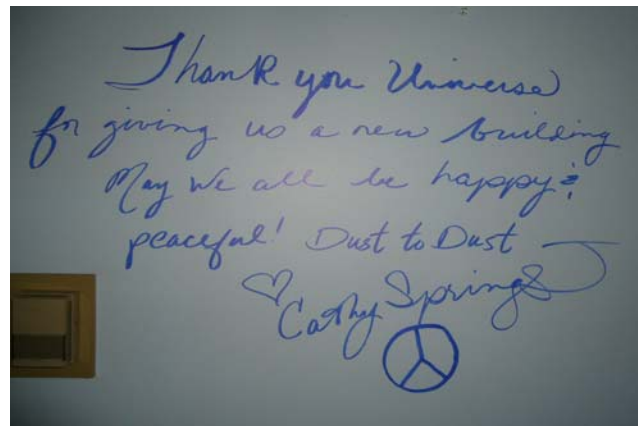 Thank you Universe
for giving us a new building
May we all be happy &
peaceful! Dust to Dust
♡ Cathy Springs